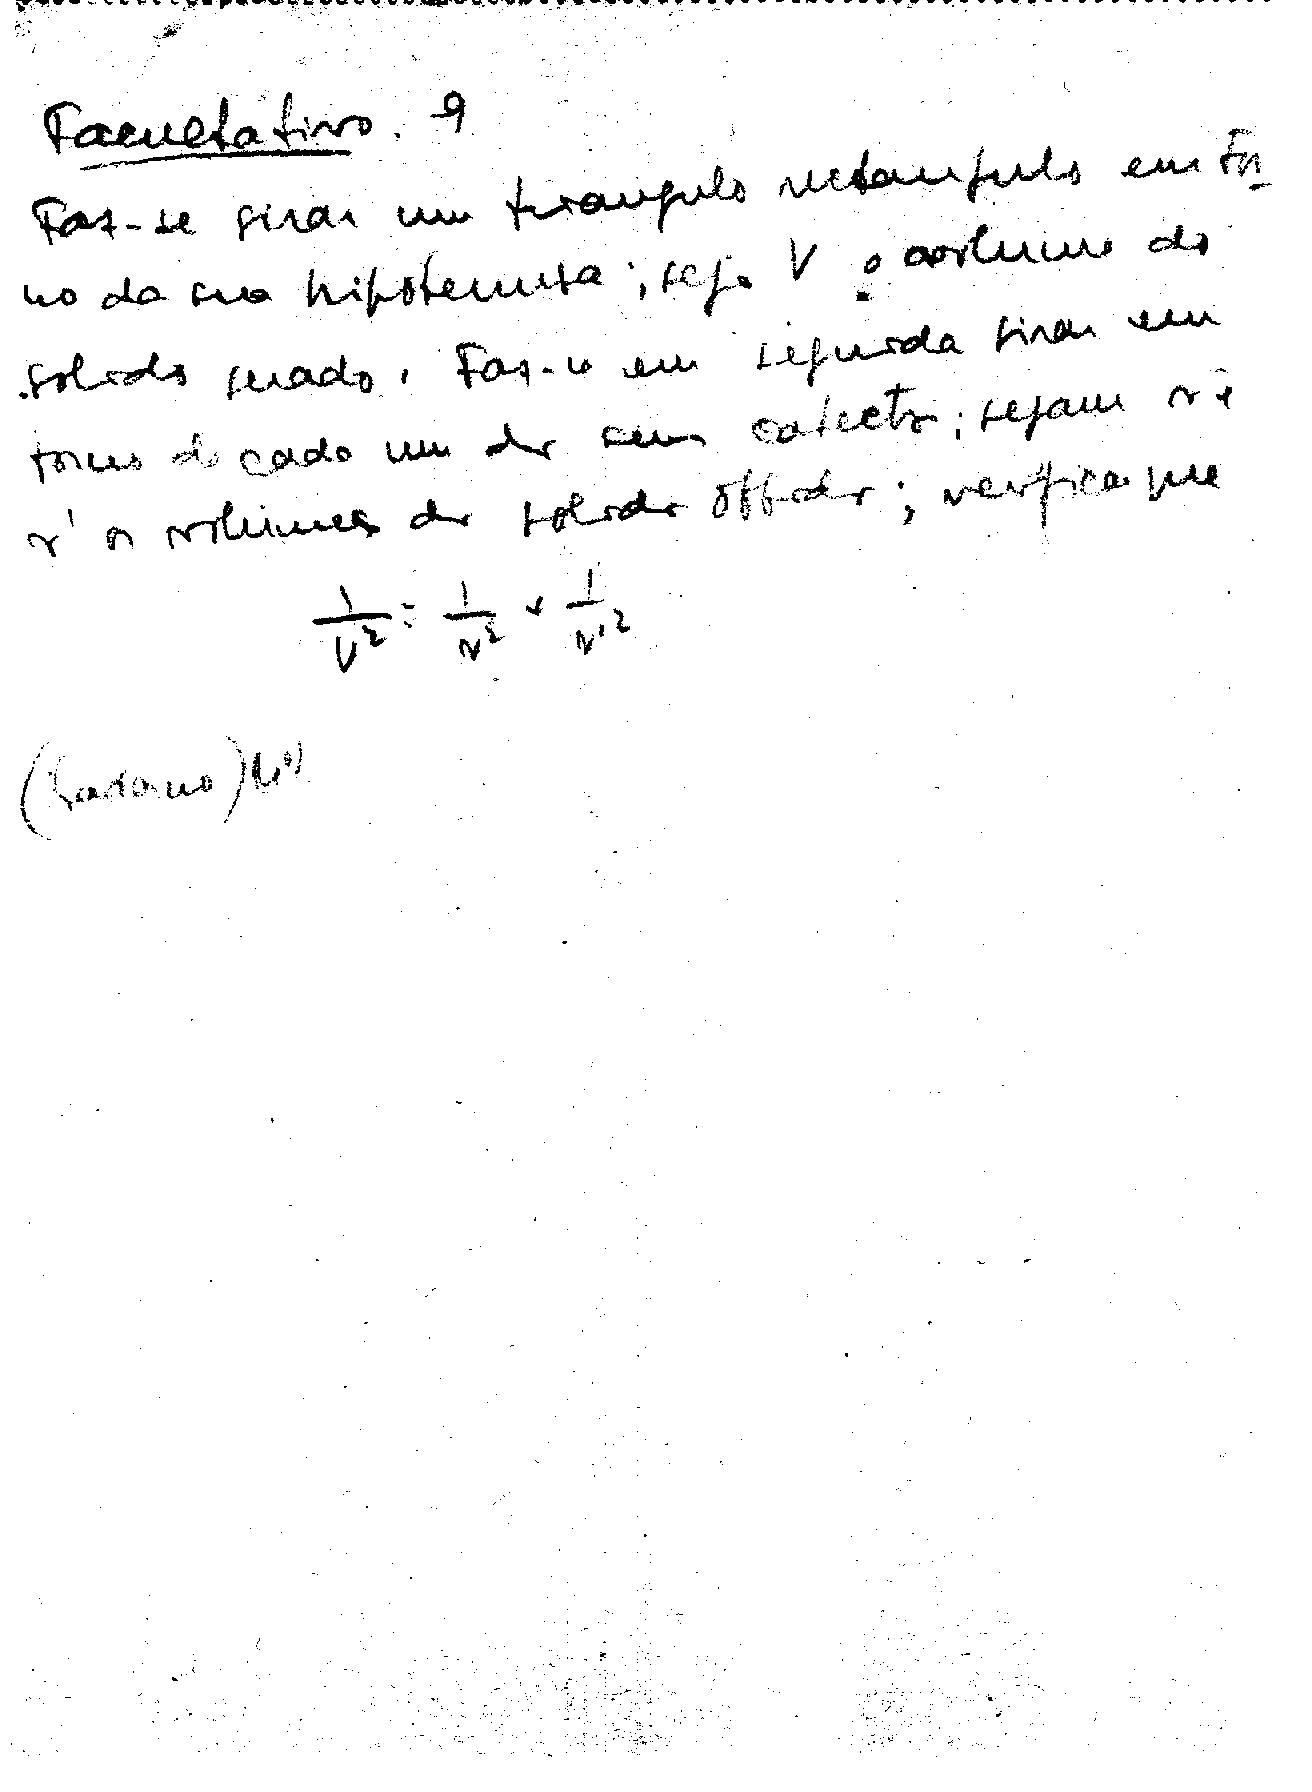 Facultativo. 9
Faz-se girar um triangulo rectangulo em tor_
no da sua hipotenusa; seja V o volume do
solido gerado. Faz-se em seguida girar em
torno de cada um dos seus catetos; sejam v e
v' os volumes dos solidos obtidos; verificar que
1/V² = 1/v² + 1/v'²